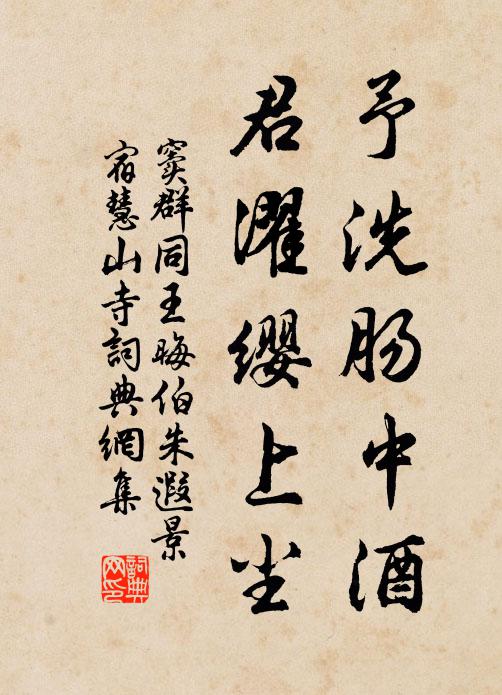 予洗肠中酒
君濯缨上尘
窦群同王晦伯朱遐景
宿慧山寺詞典網集
詞典
网印